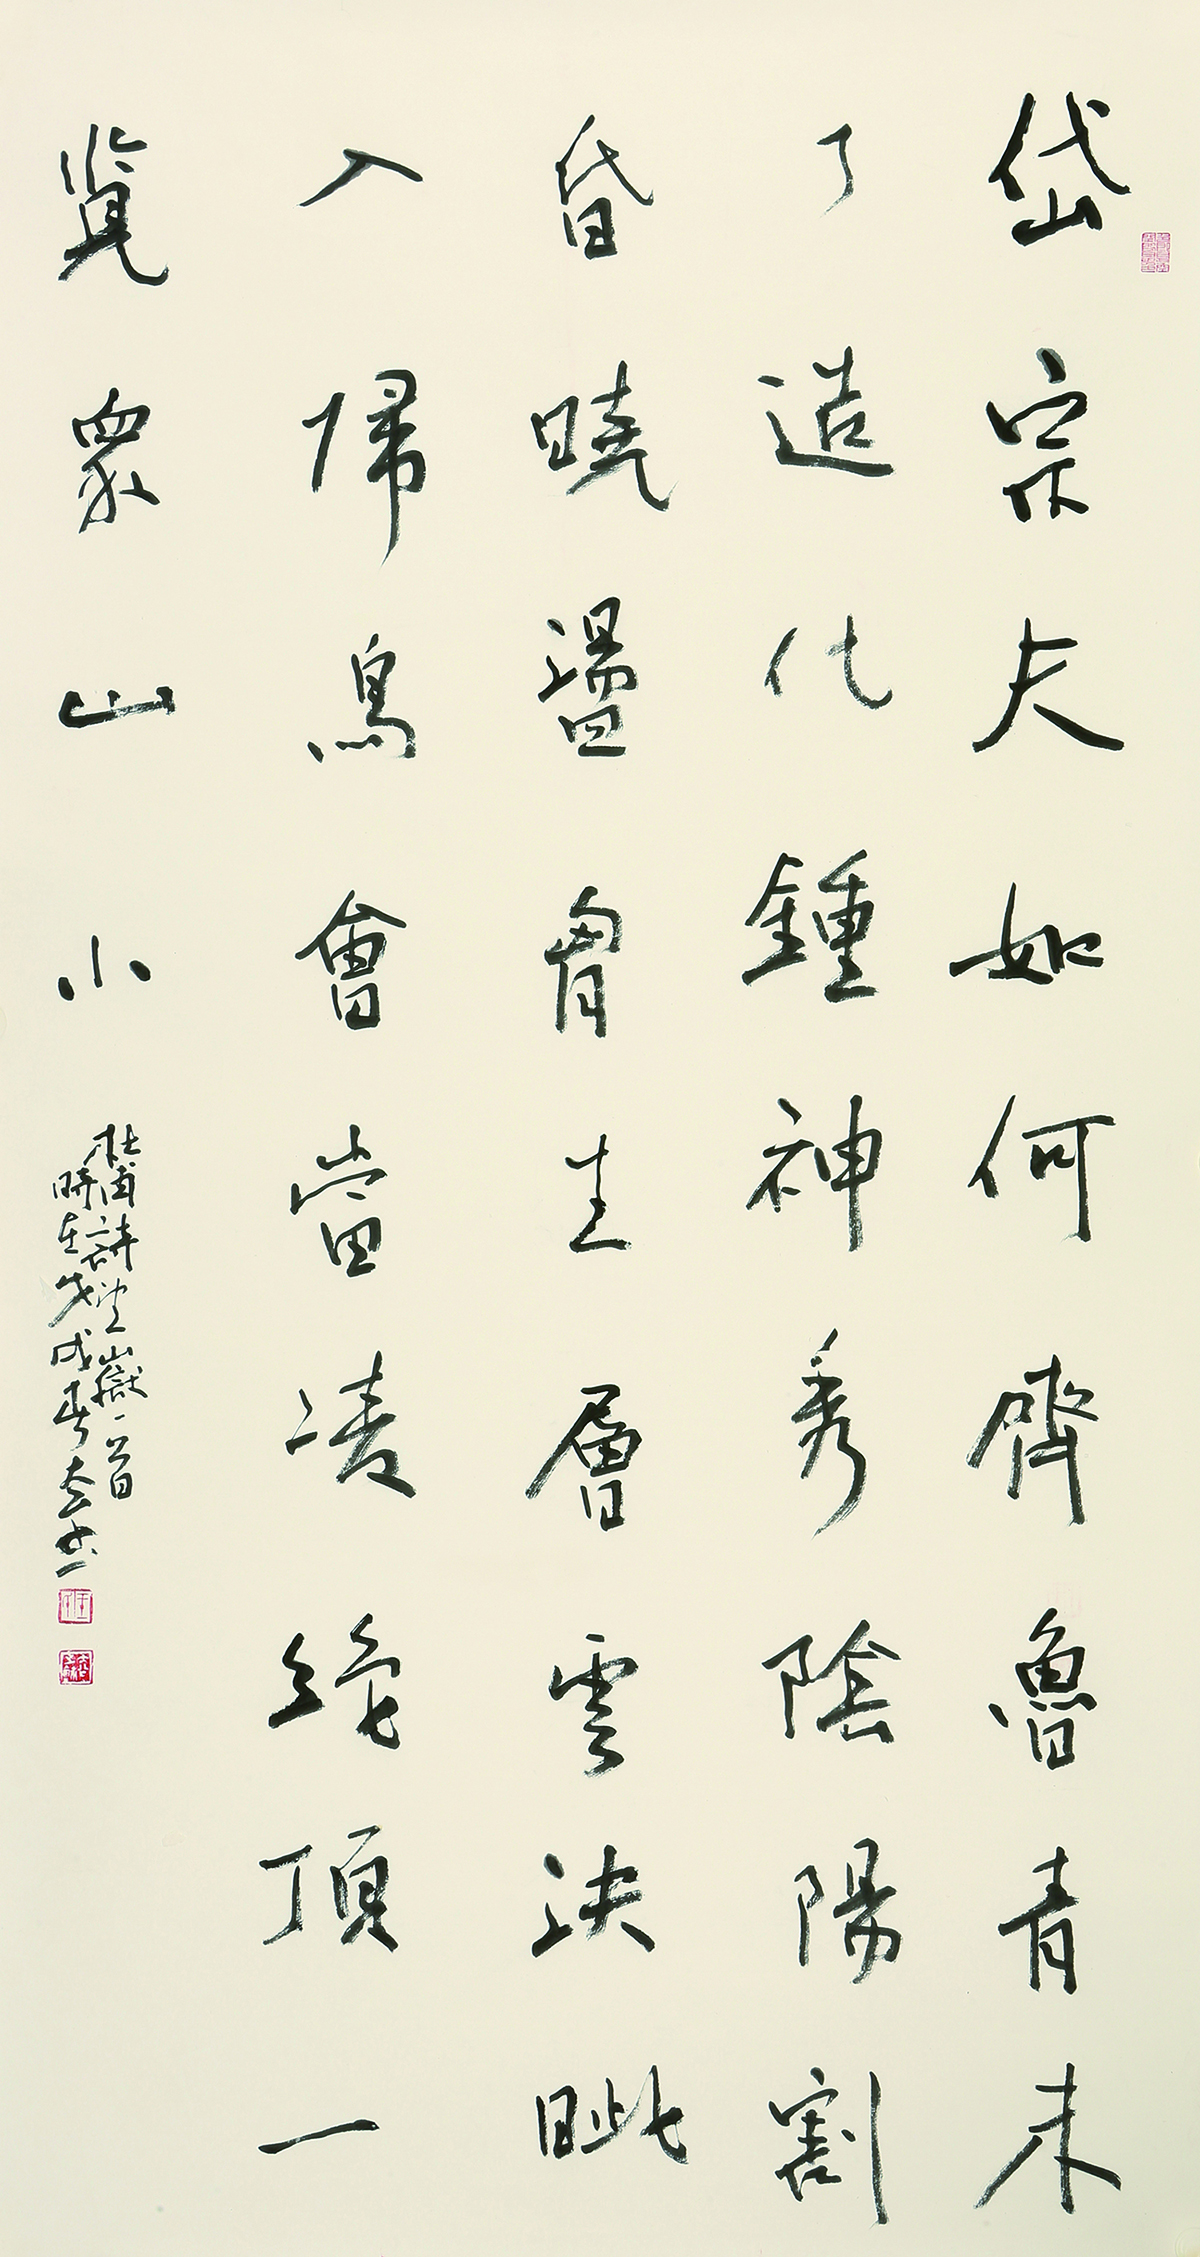 岱宗夫如何齊魯青未
了造化鍾神秀陰陽割
昏曉盪胷生層雲決眦
入帰鳥會當凌絕頂一
覽衆山小
杜甫詩望嶽一首
時在戊戌春